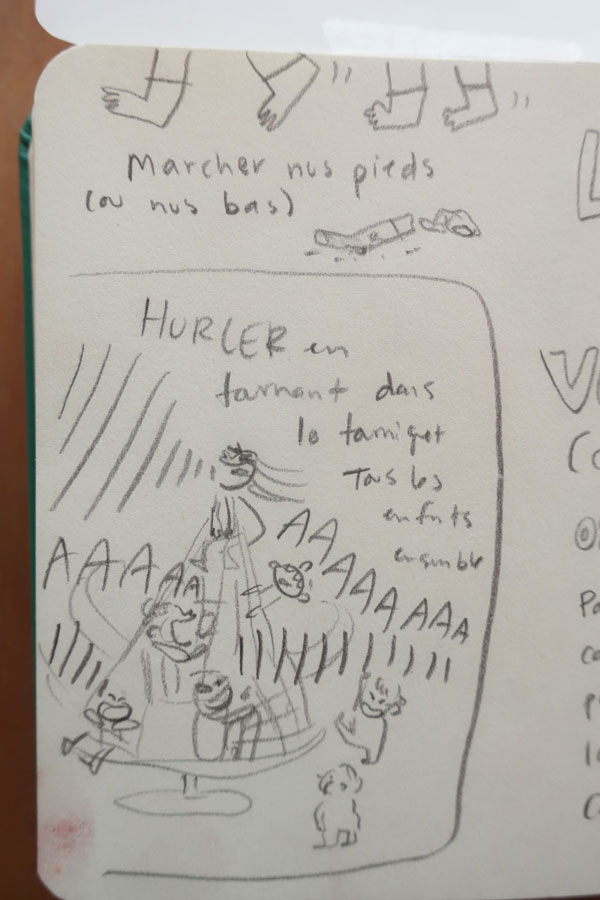 Marcher nus pieds
(ou nus bas)
HURLER en
tournant dans
le tourniquet
Tous les
enfants
ensemble
AA
AAAAA
AAAAAA
L
V
(